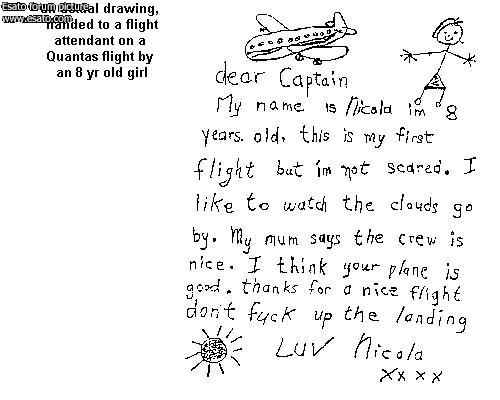 Esato forum picture
www.esato.com
al drawing,
handed to a flight
attendant on a
Quantas flight by
an 8 yr old girl
dear Captain
My name is Nicola im 8
years. old, this is my first
flight but im not scared. I
like to watch the clouds go
by. My mum says the crew is
nice. I think your plane is
good. thanks for a nice flight
don't fuck up the landing
Luv Nicola
xxxx